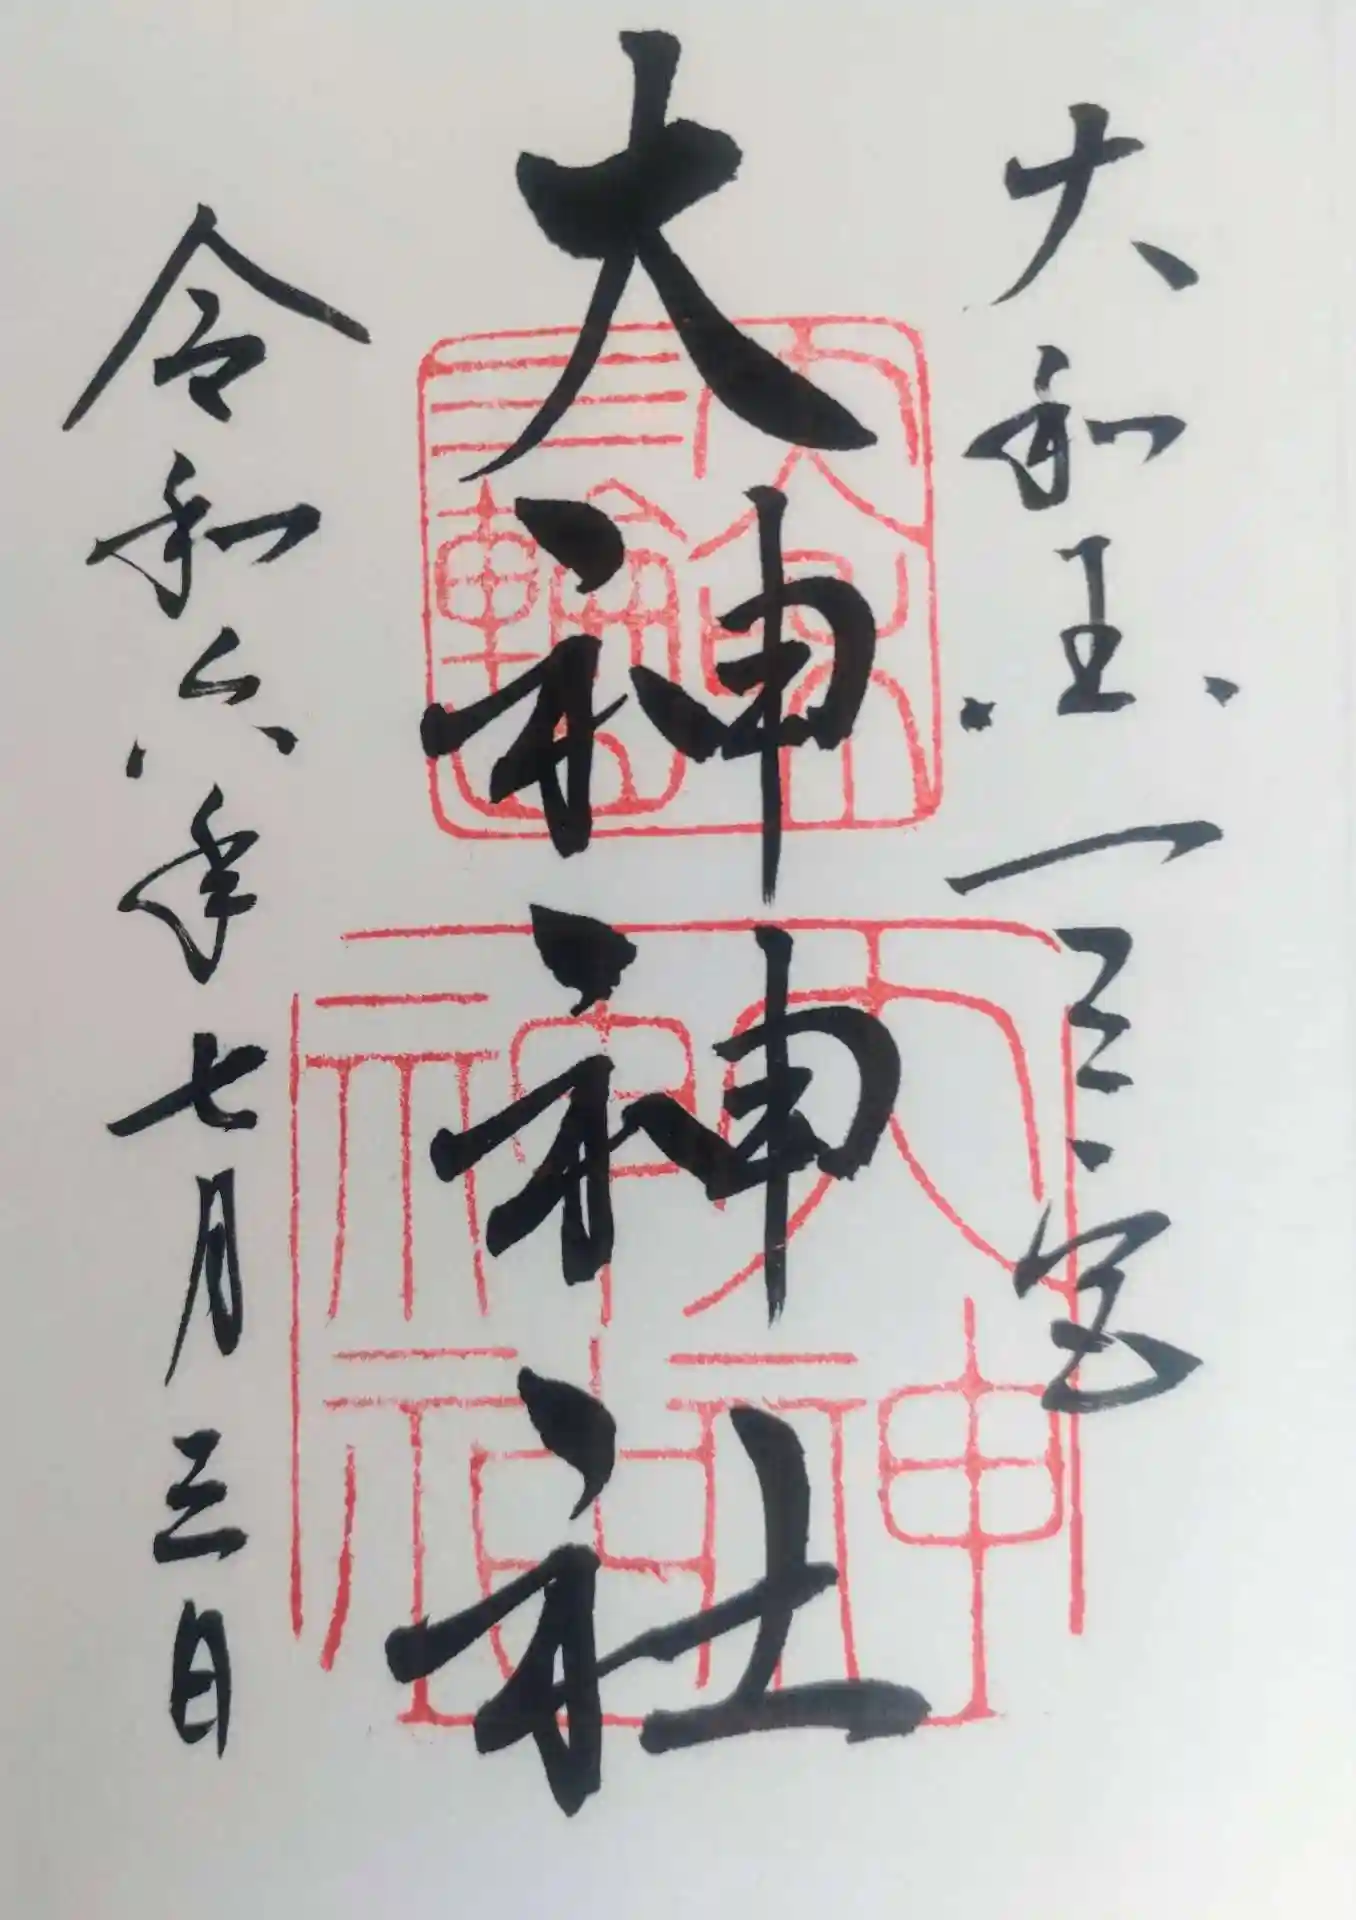 大和国一之宮
大神神社
令和六年七月三日
三輪
大神
神社